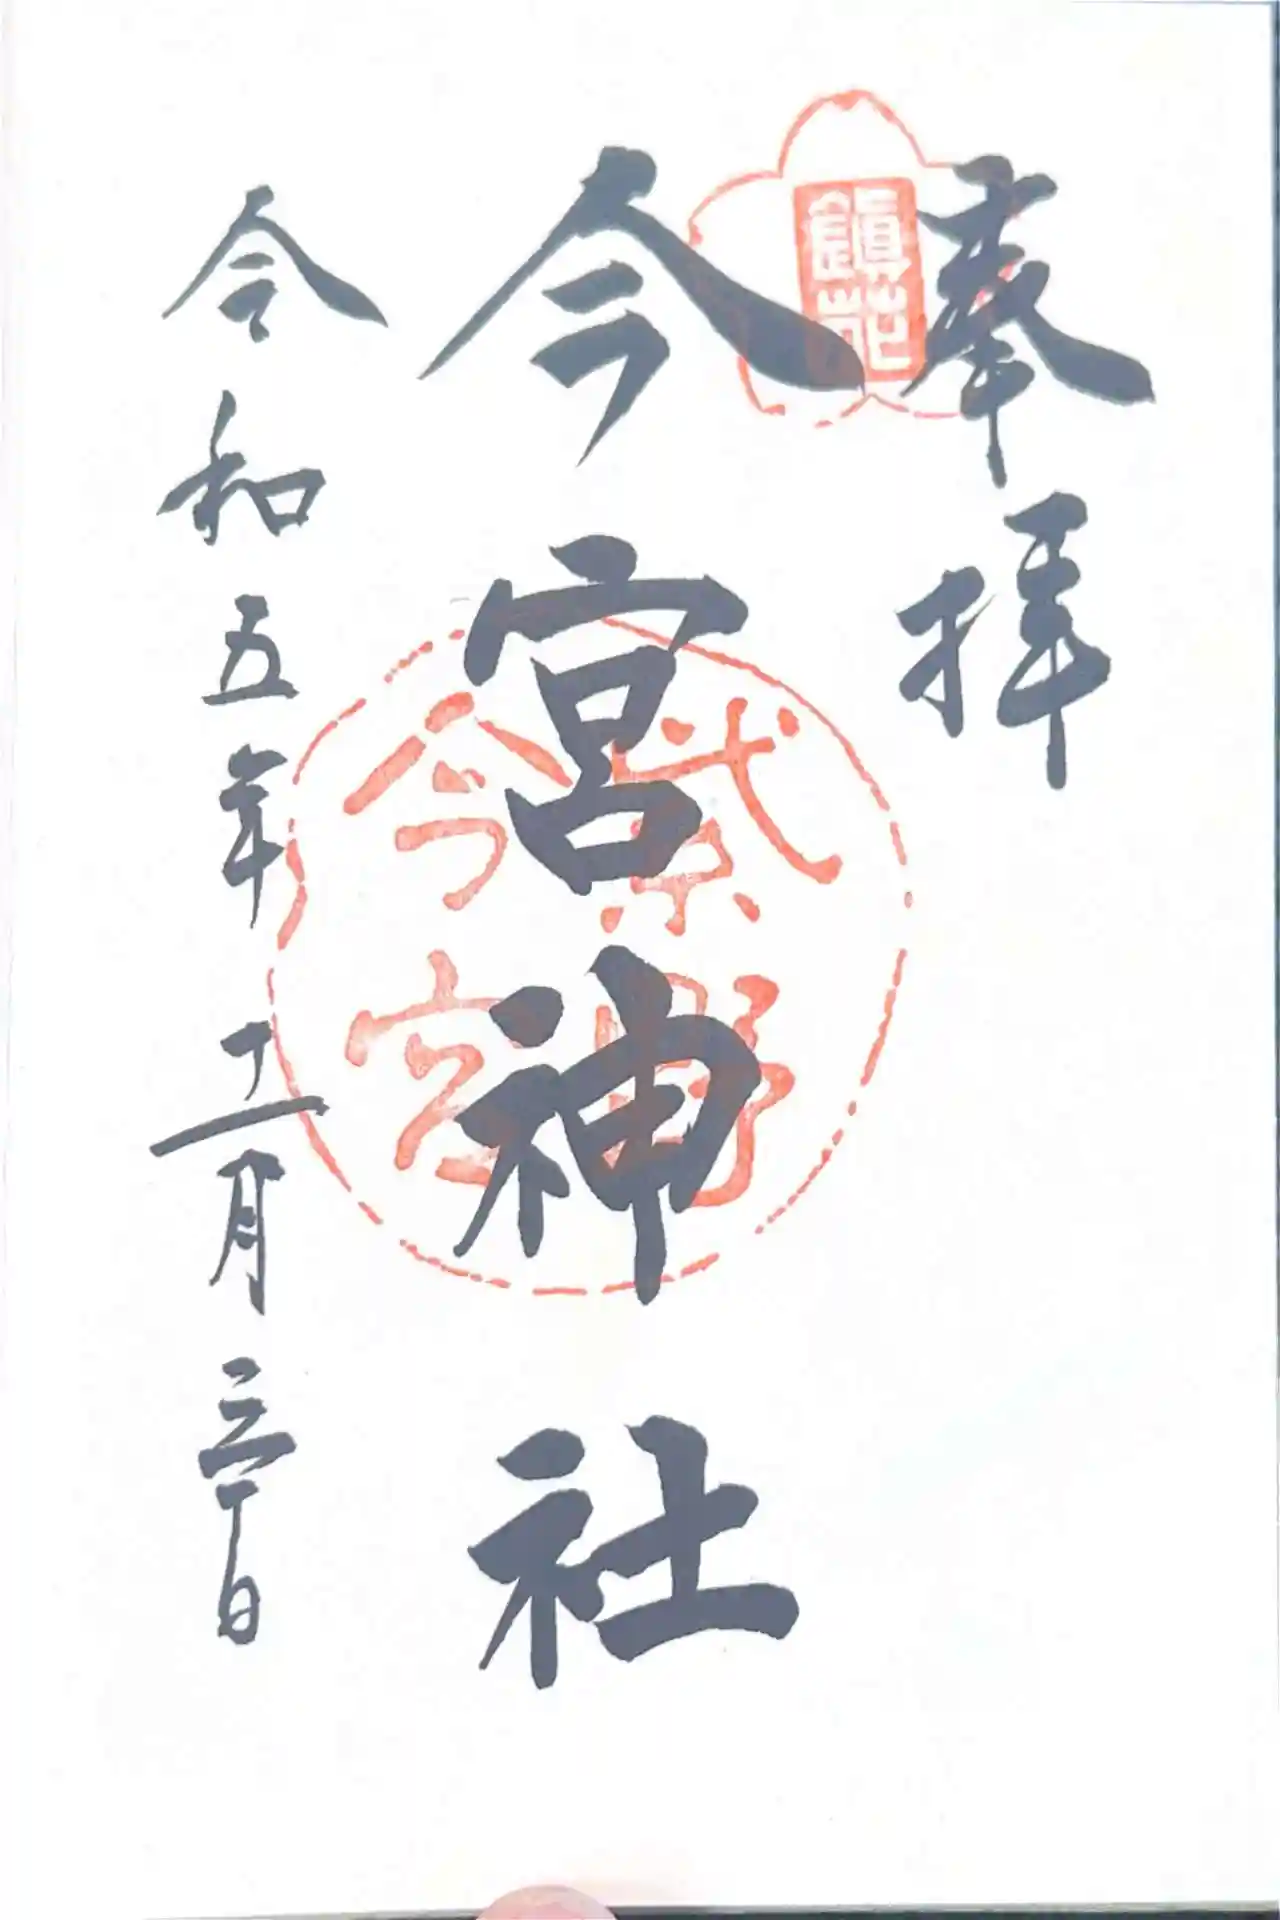 奉拝
鎮花
今宮神社
紫野
今宮
令和五年十二月三十日